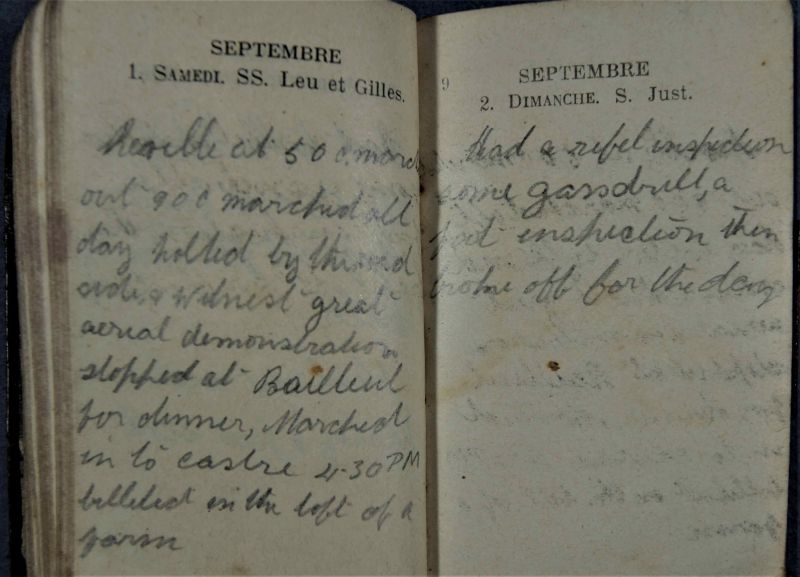 SEPTEMBRE
1. SAMEDI. SS. Leu et Gilles.
Reveille at 500. march
out 900 marched all
day holted by the rod
side & witnest great
aerial demonstration
stopped at Bailleul
for dinner, Marched
in to castre 4-30 PM
billeted in the loft of a
farm
9
SEPTEMBRE
2. DIMANCHE. S. Just.
Had a rifel inspection
some gassdrill, a
foot inspection then
broke off for the day